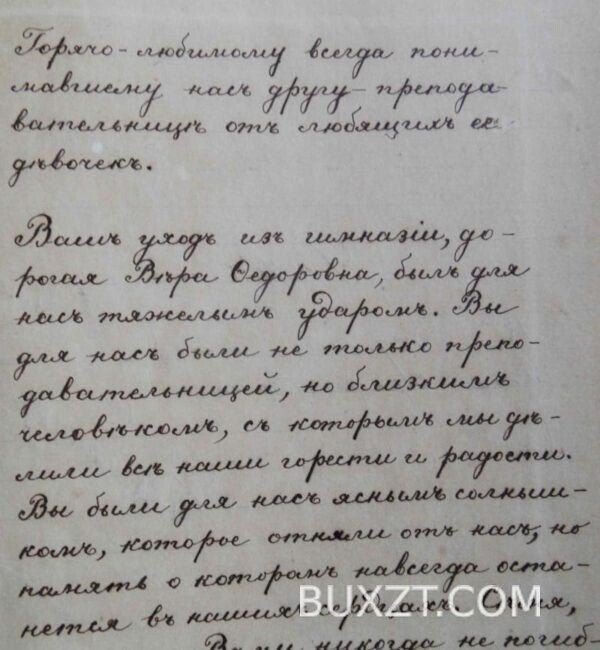 Горячо-любимому всегда пони-
мавшему насъ другу-препода-
вательницѣ отъ любящихъ ее
дѣвочекъ.
Вашъ уходъ изъ гимназіи, до-
рогая Вѣра Ѳедоровна, былъ для
насъ тяжелымъ ударомъ. Вы
для насъ были не только препо-
давательницей, но близкимъ
человѣкомъ, съ которымъ мы дѣ-
лили всѣ наши горести и радости.
Вы были для насъ яснымъ солныш-
комъ, которое отняли отъ насъ, но
память о которомъ навсегда оста-
нется въ нашихъ сердцахъ.
BUXZT.COM
никогда не погиб-